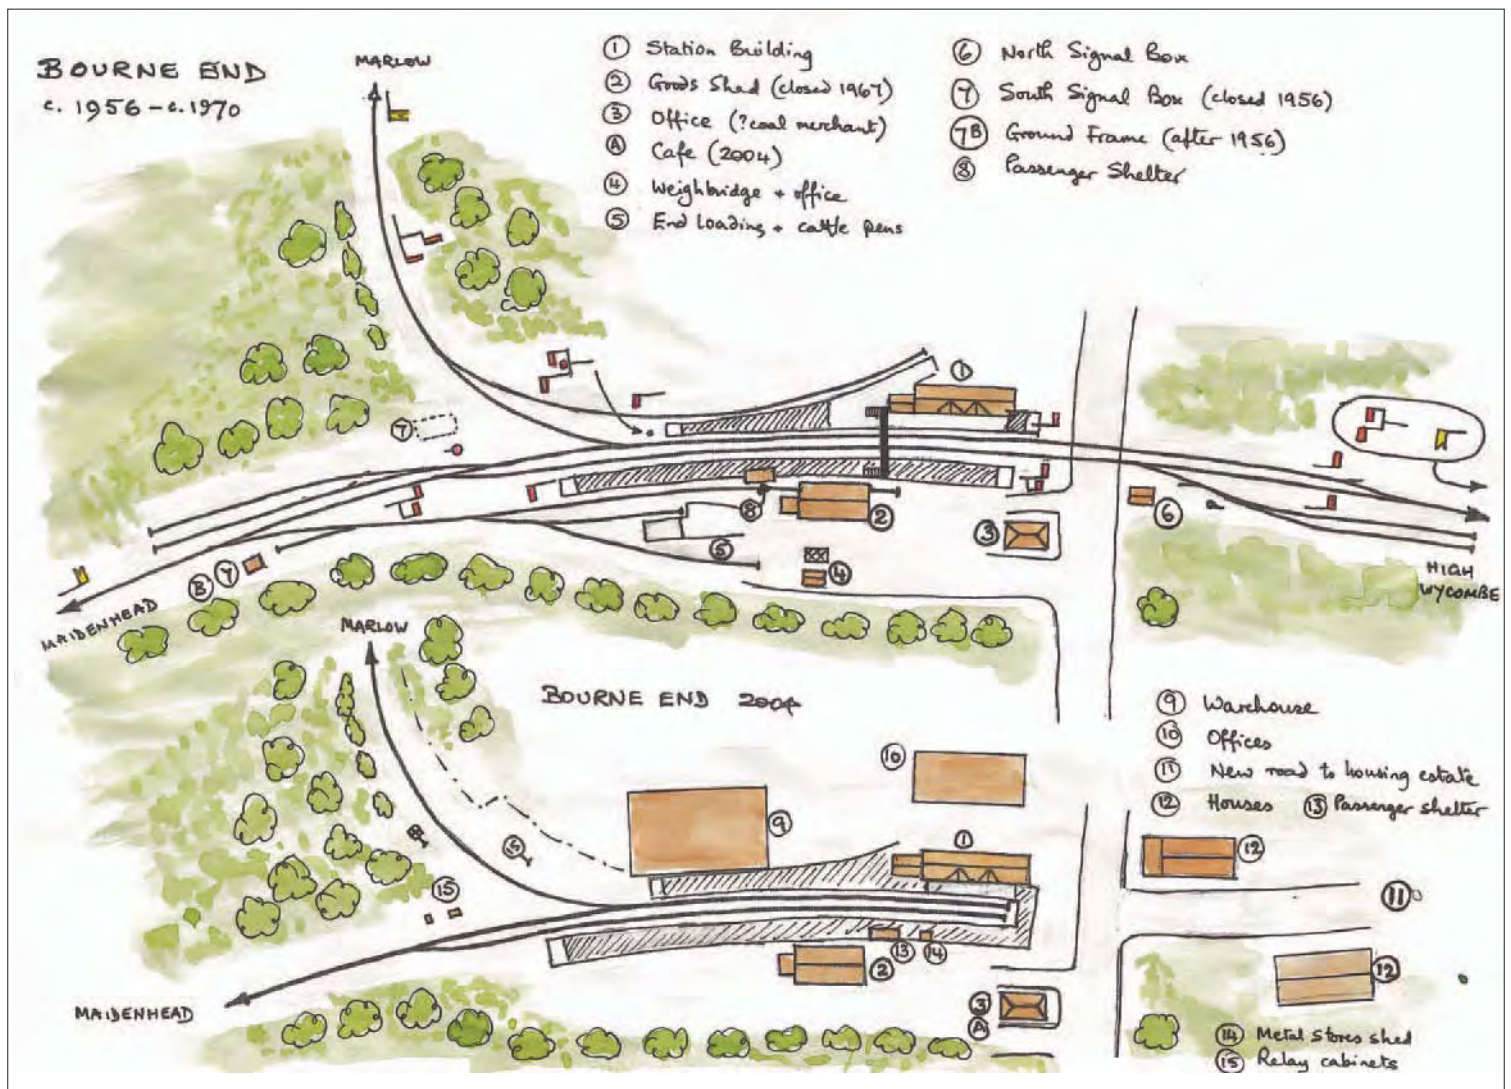 BOURNE END
c. 1956 - c. 1970
MARLOW
1 Station Building
2 Goods Shed (closed 1967)
3 Office (?coal merchant)
A Cafe (2004)
4 Weighbridge + office
5 End loading + cattle pens
6 North Signal Box
7 South Signal Box (closed 1956)
7B Ground Frame (after 1956)
8 Passenger Shelter
1
7
8
2
3
6
5
4
B 7
MAIDENHEAD
HIGH
WYCOMBE
MARLOW
BOURNE END 2004
9 Warehouse
10 Offices
11 New road to housing estate
12 Houses 13 Passenger shelter
10
9
1
12
15
11
13
14
2
12
3
A
MAIDENHEAD
14 Metal Stores shed
15 Relay cabinets